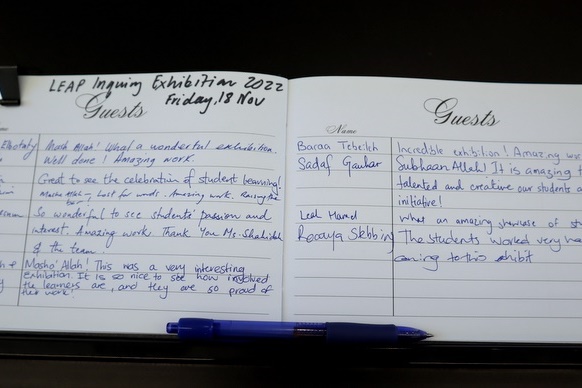 LEAP Inquiry Exhibition 2022
Friday, 18 Nov
Guests
Mash Allah! What a wonderful exhibition.
Well done! Amazing work.
Great to see the celebration of student learning!
Mash Allah – Lost for words. Amazing work. Raising the
bar!
So wonderful to see students' passion and
interest. Amazing work. Thank You Ms. Shahidah
& the team
Masha' Allah! This was a very interesting
exhibition. It is so nice to see how involved
the learners are, and they are so proud of
their work!
Guests
Name
Baraa
Incredible exhibition! Amazing
Sadaf Gauhar
Subhaan Allah! It is amazing
talented and creative our students
initiative!
What an amazing showcase of
The students worked very
exhibit